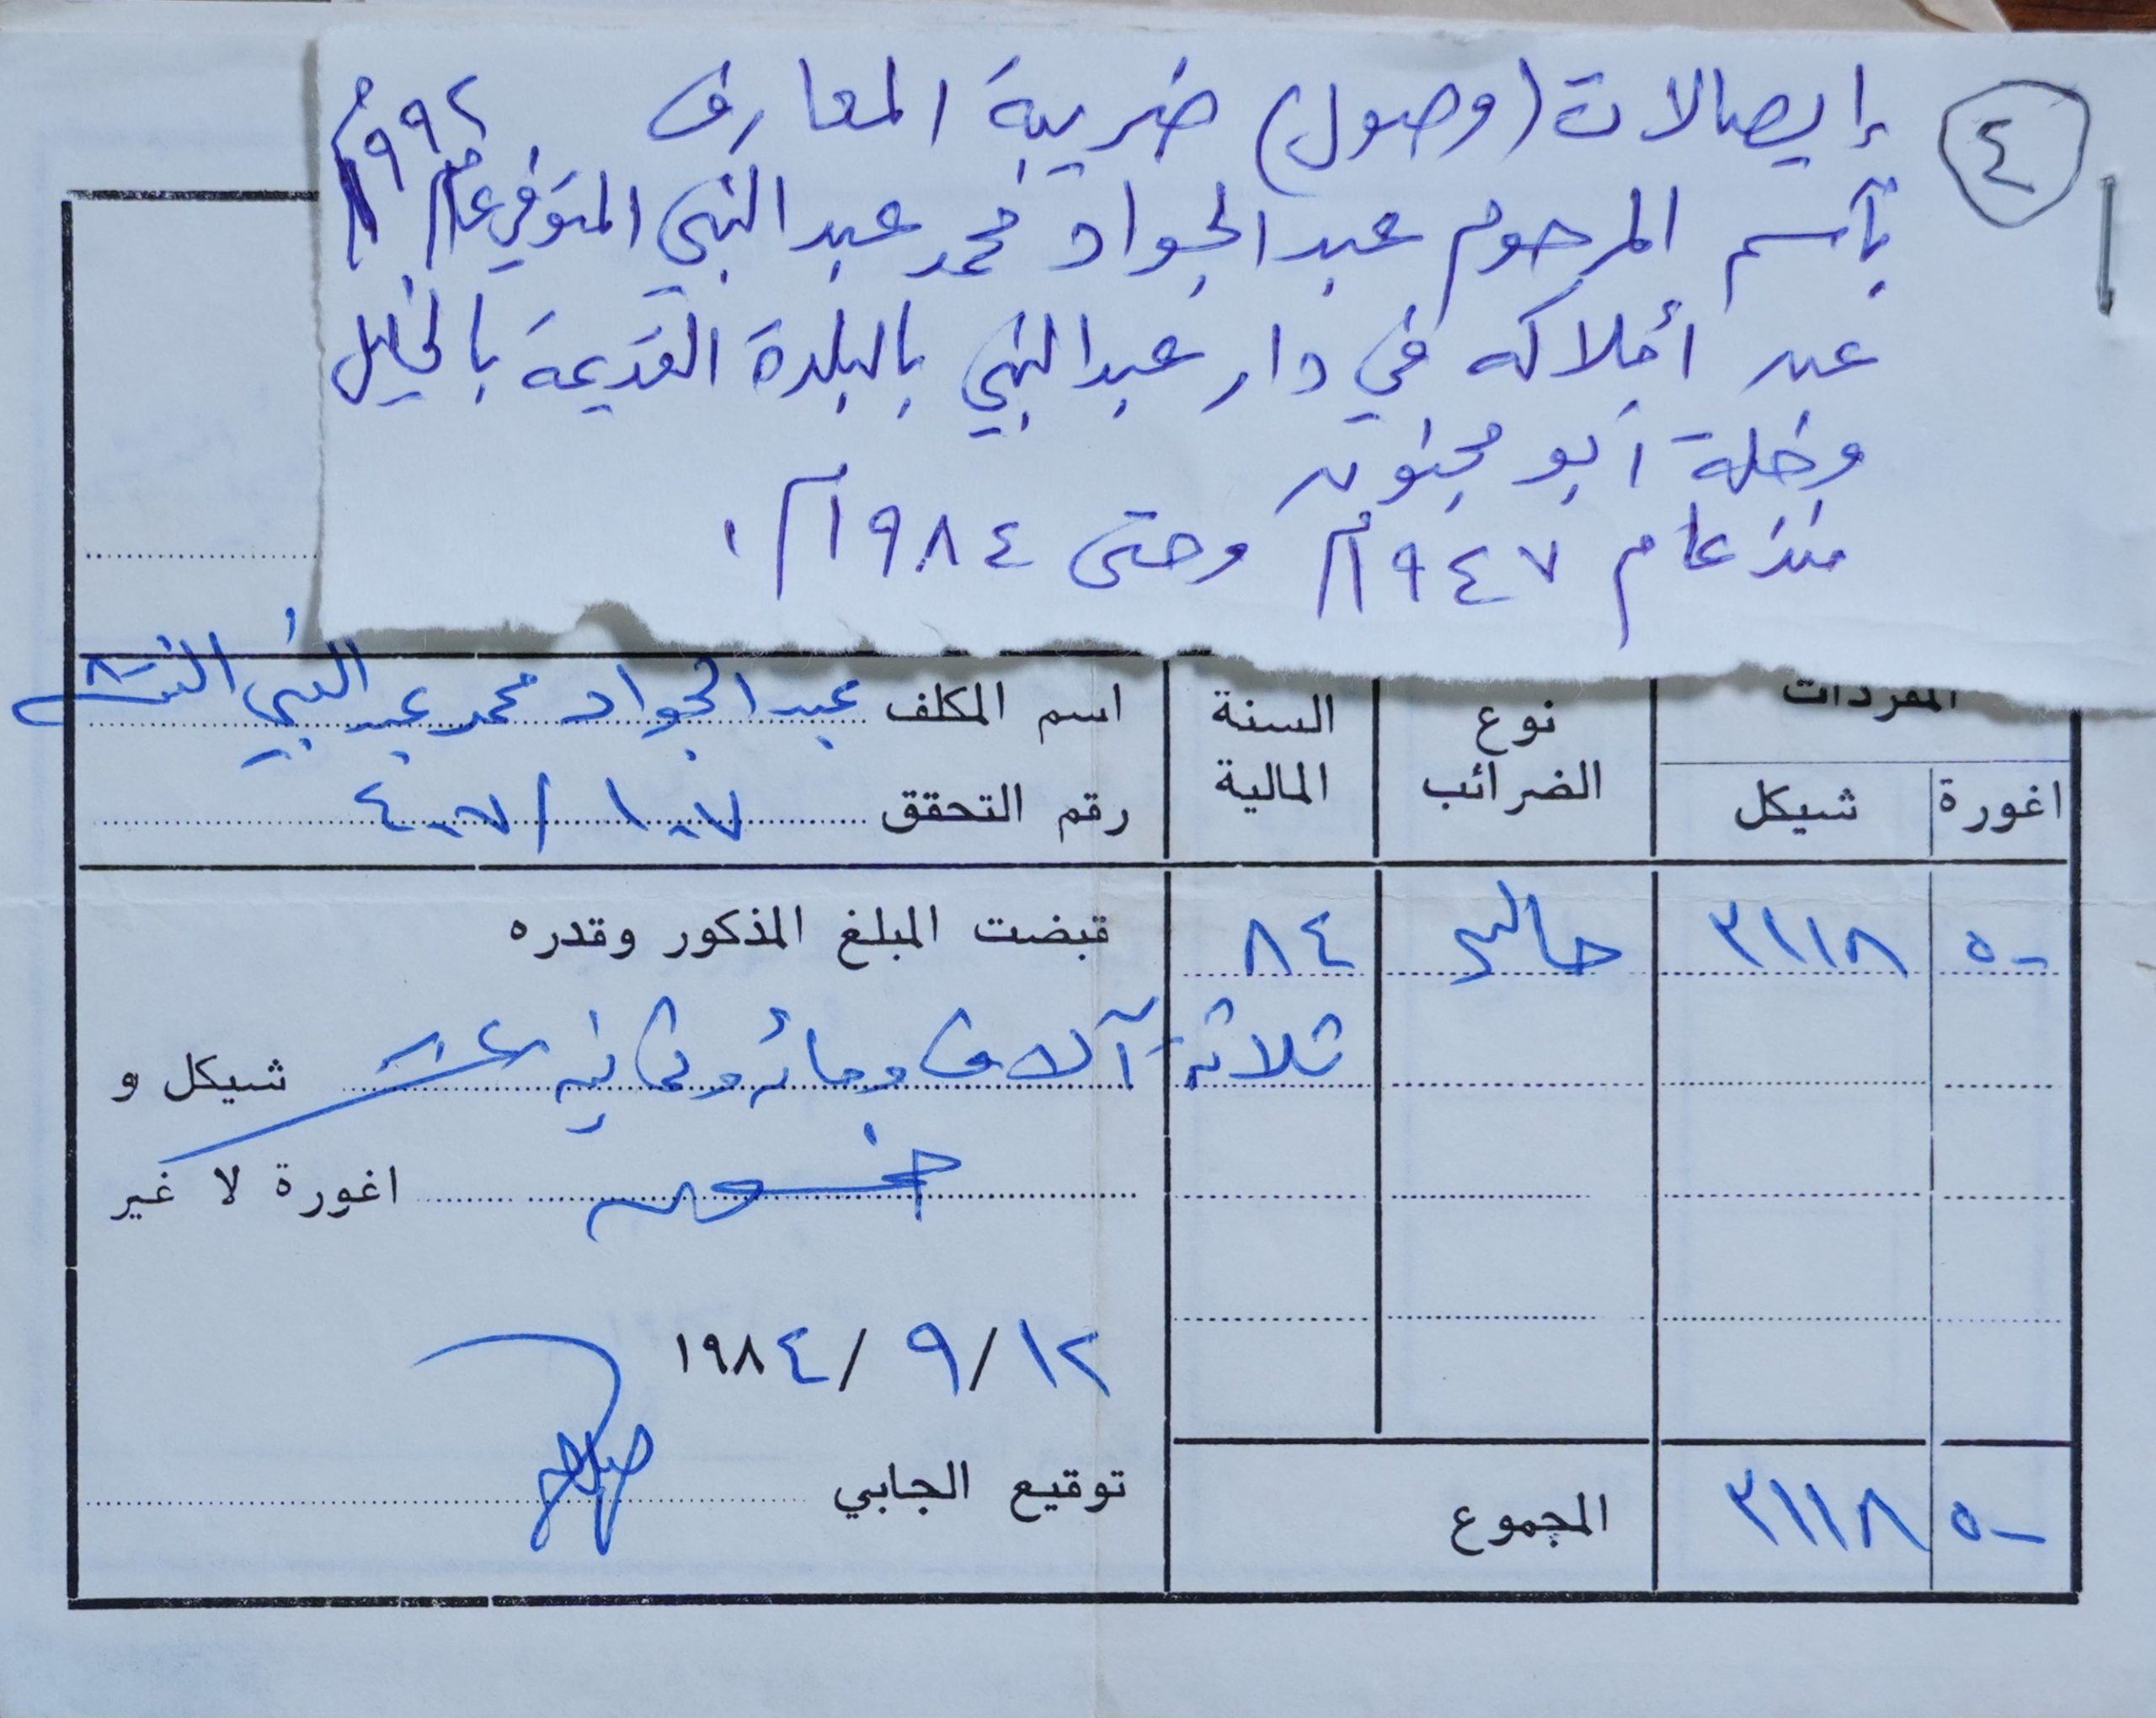 ٤
إيصالات (وصول) ضريبة المعارف
بآسم المرحوم عبد الجواد محمد عبد النبي المتوفي عام ١٩٩٢م
عن أملاكه في دار عبد النبي بالبلدة القديمة بالخليل
وخلة أبو مجنونه
منذ عام ١٩٤٧م وحتى ١٩٨٤م.
المفردات
اغورة
شيكل
نوع الضرائب
السنة المالية
اسم المكلف عبد الجواد محمد عبد النبي النتشه
رقم التحقق ١٠٧ / ٤٠٧
٥٠ ٣١١٨ حالي ٨٤
قبضت المبلغ المذكور وقدره
ثلاثة آلاف ومائة وثمانية عشر شيكل و
خمسون اغورة لا غير
١٢ / ٩ / ١٩٨٤
توقيع الجابي
المجموع
٥٠ ٣١١٨